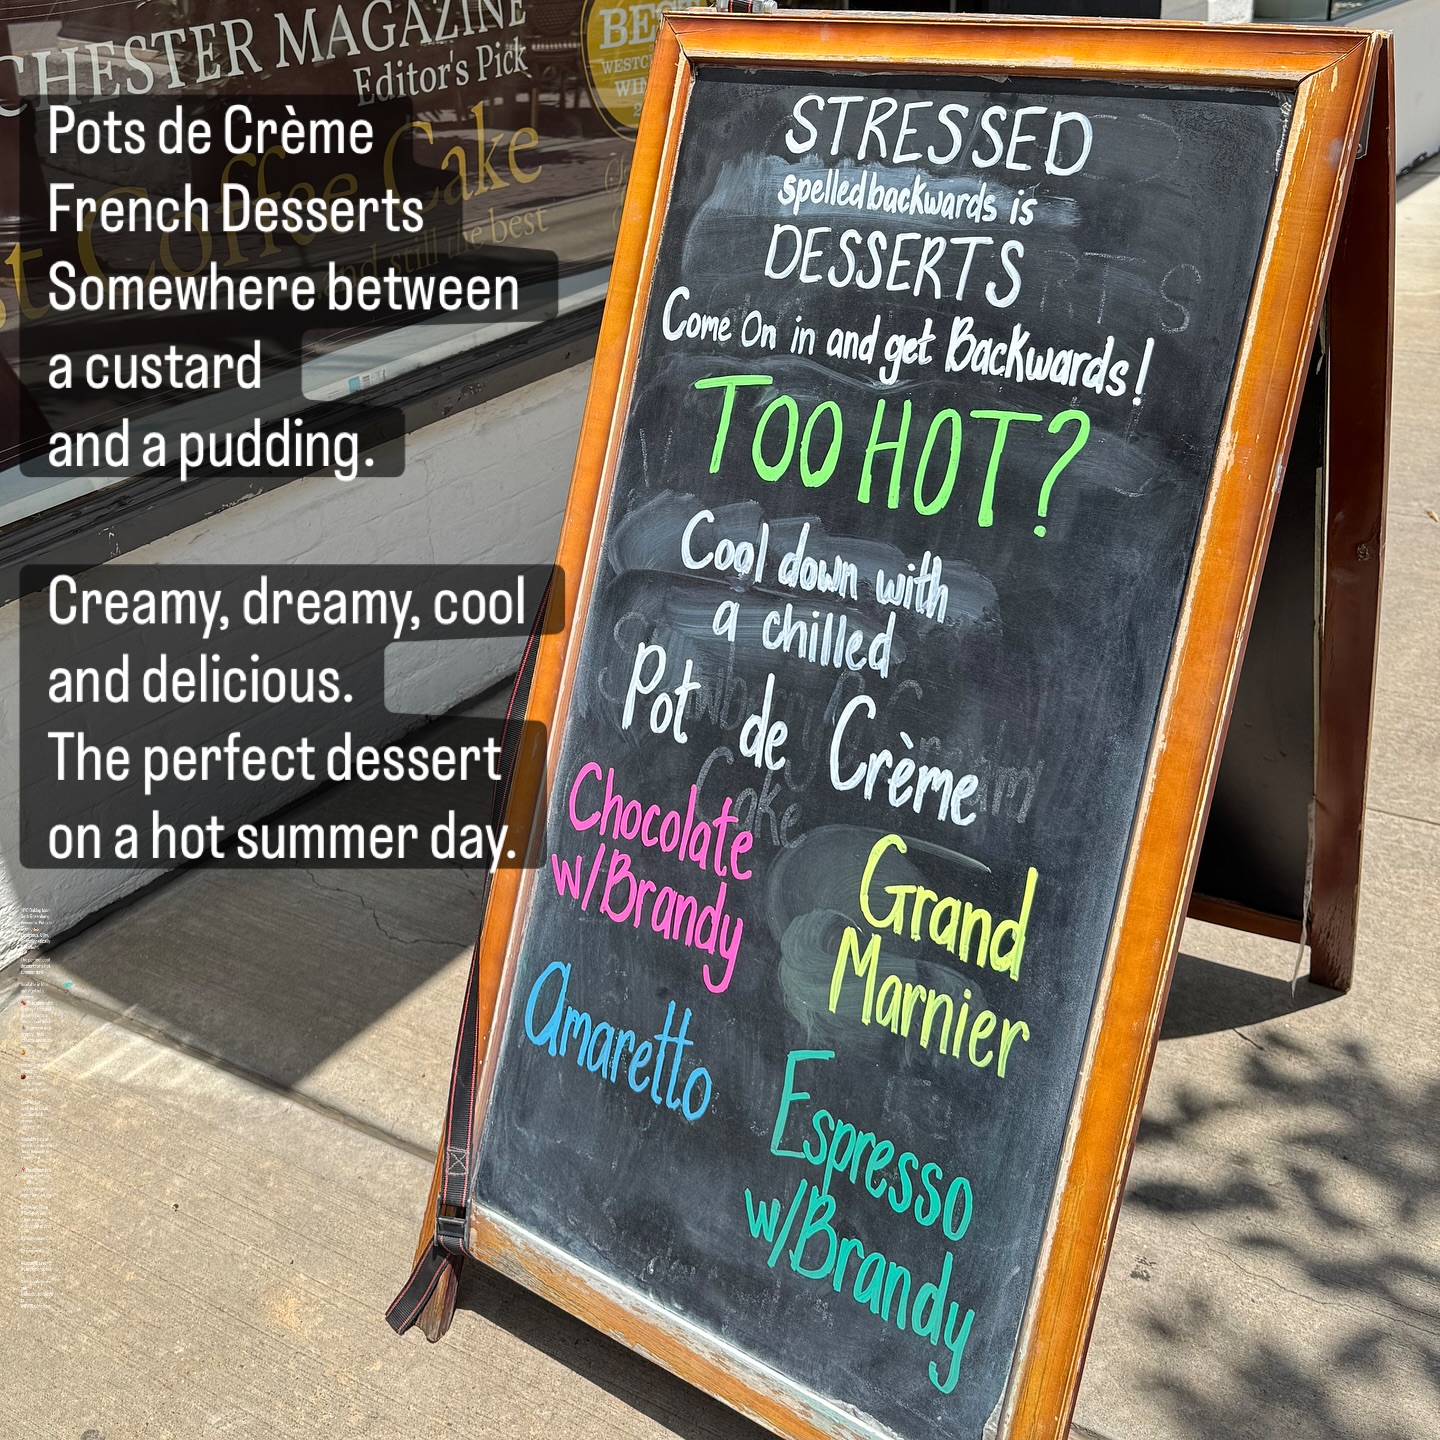 CHESTER MAGAZINE
Editor's Pick
BES
WESTC
WIN
2
t Coffee Cake
and still the best
Pots de Crème
French Desserts
Somewhere between
a custard
and a pudding.
Creamy, dreamy, cool
and delicious.
The perfect dessert
on a hot summer day.
STRESSED
spelled backwards is
DESSERTS
Come On in and get Backwards!
TOO HOT?
Cool down with
a chilled
Pot de Crème
Chocolate
w/Brandy
Grand
Marnier
Amaretto
Espresso
w/Brandy